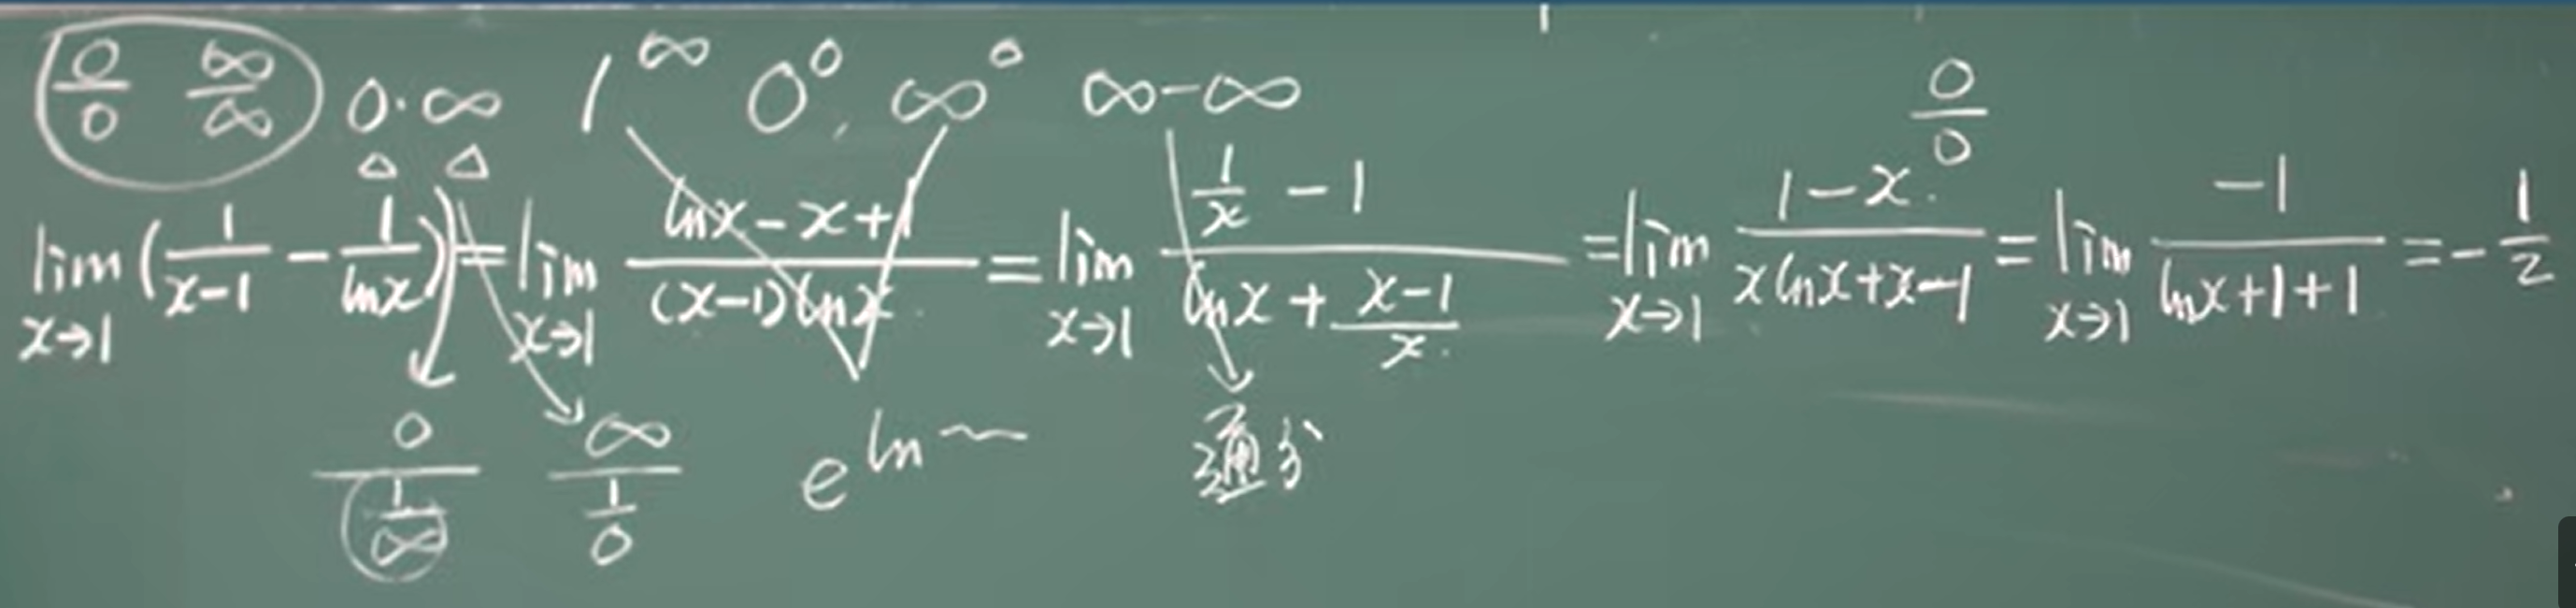 0/0 ∞/∞ 0·∞ 1^∞ 0^0, ∞^0 ∞-∞ 0/0
△ △
lim_{x→1} (1/(x-1) - 1/lnx) = lim_{x→1} (lnx-x+1)/((x-1)lnx) = lim_{x→1} (1/x - 1)/(lnx + (x-1)/x) = lim_{x→1} (1-x)/(xlnx+x-1) = lim_{x→1} -1/(lnx+1+1) = -1/2
0/(1/∞) ∞/(1/0) e^{ln~} 通分